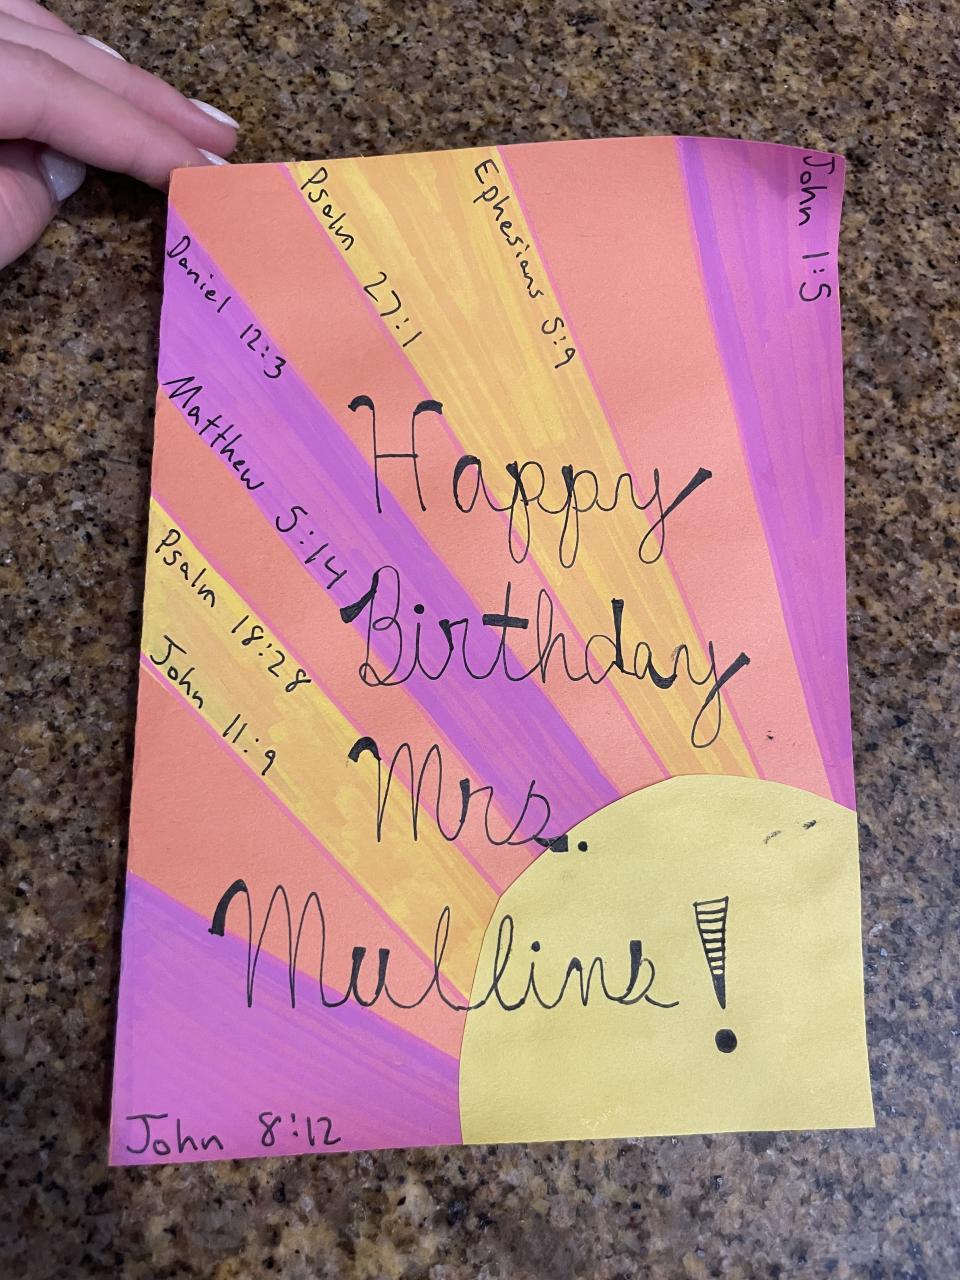 John 1:5
Ephesians 5:9
Psalm 27:1
Daniel 12:3
Matthew 5:14
Psalm 18:28
John 11:9
John 8:12
Happy
Birthday
Mrs.
Mullins!